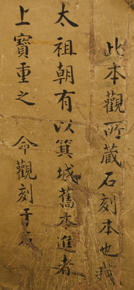 此本觀所藏石刻本也我
太祖朝有以箕城舊本進者
上寶重之 命觀刻于石